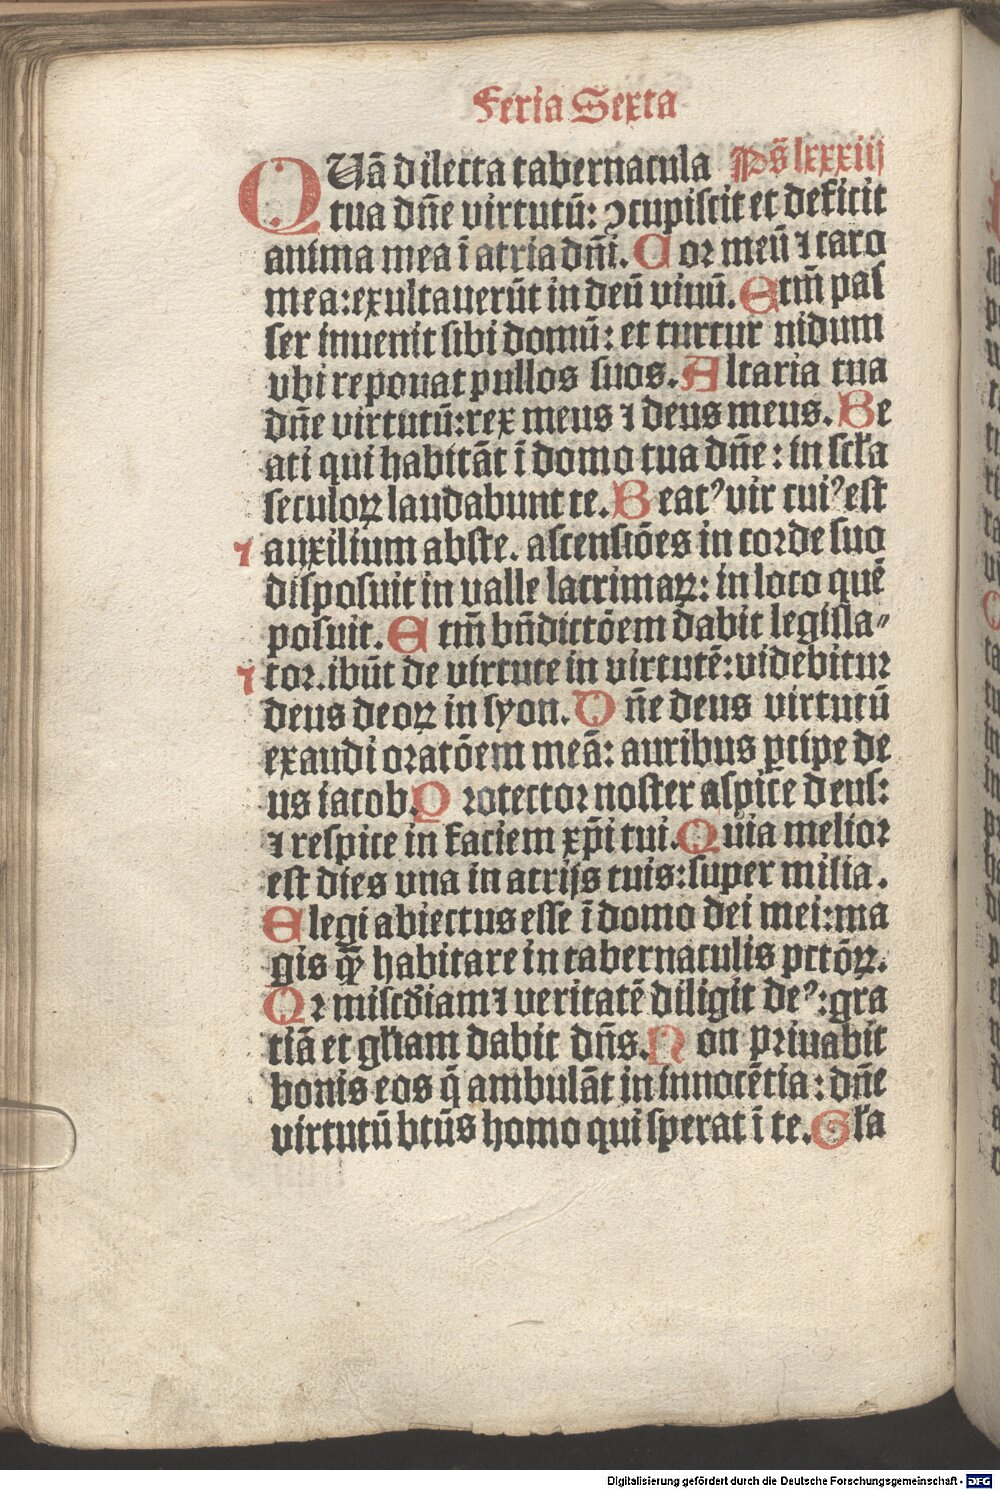 Feria Sexta
QUã dilecta tabernacula Ps̃ lxxxiij
tua dn̄e virtutū: ↄcupiscit et deficit
anima mea ī atria dn̄i. Cor meū ⁊ caro
mea: exultauerūt in deū viuū. Etm̄ pas
ser inuenit sibi domū: et turtur nidum
vbi reponat pullos suos. Altaria tua
dn̄e virtutū: rex meus ⁊ deus meus. Be
ati qui habitāt ī domo tua dn̄e: in scl̄a
seculoꝝ laudabunt te. Beatꝰ vir cuiꝰ est
⁊ auxilium abste. ascensiōes in corde suo
disposuit in valle lacrimaꝝ: in loco quē
posuit. Etm̄ bn̄dictōem dabit legisla⸗
⁊ tor. ibūt de virtute in virtutē: videbitur
deus deoꝝ in syon. Dn̄e deus virtutū
exaudi oratōem meā: auribus ꝑcipe de
us iacob. Protector noster aspice deus:
⁊ respice in faciem xp̄i tui. Quia melior
est dies vna in atrijs tuis: super milia.
Elegi abiectus esse ī domo dei mei: ma
gis qꝫ̄ habitare in tabernaculis pctōꝝ.
Qr miscd̄iam ⁊ veritatē diligit deꝰ: gra
tiā et gl̄iam dabit dn̄s. Non priuabit
bonis eos q̄ ambulāt in innocētia: dn̄e
virtutū btūs homo qui sperat ī te. Gl̄a
Digitalisierung gefördert durch die Deutsche Forschungsgemeinschaft - DFG